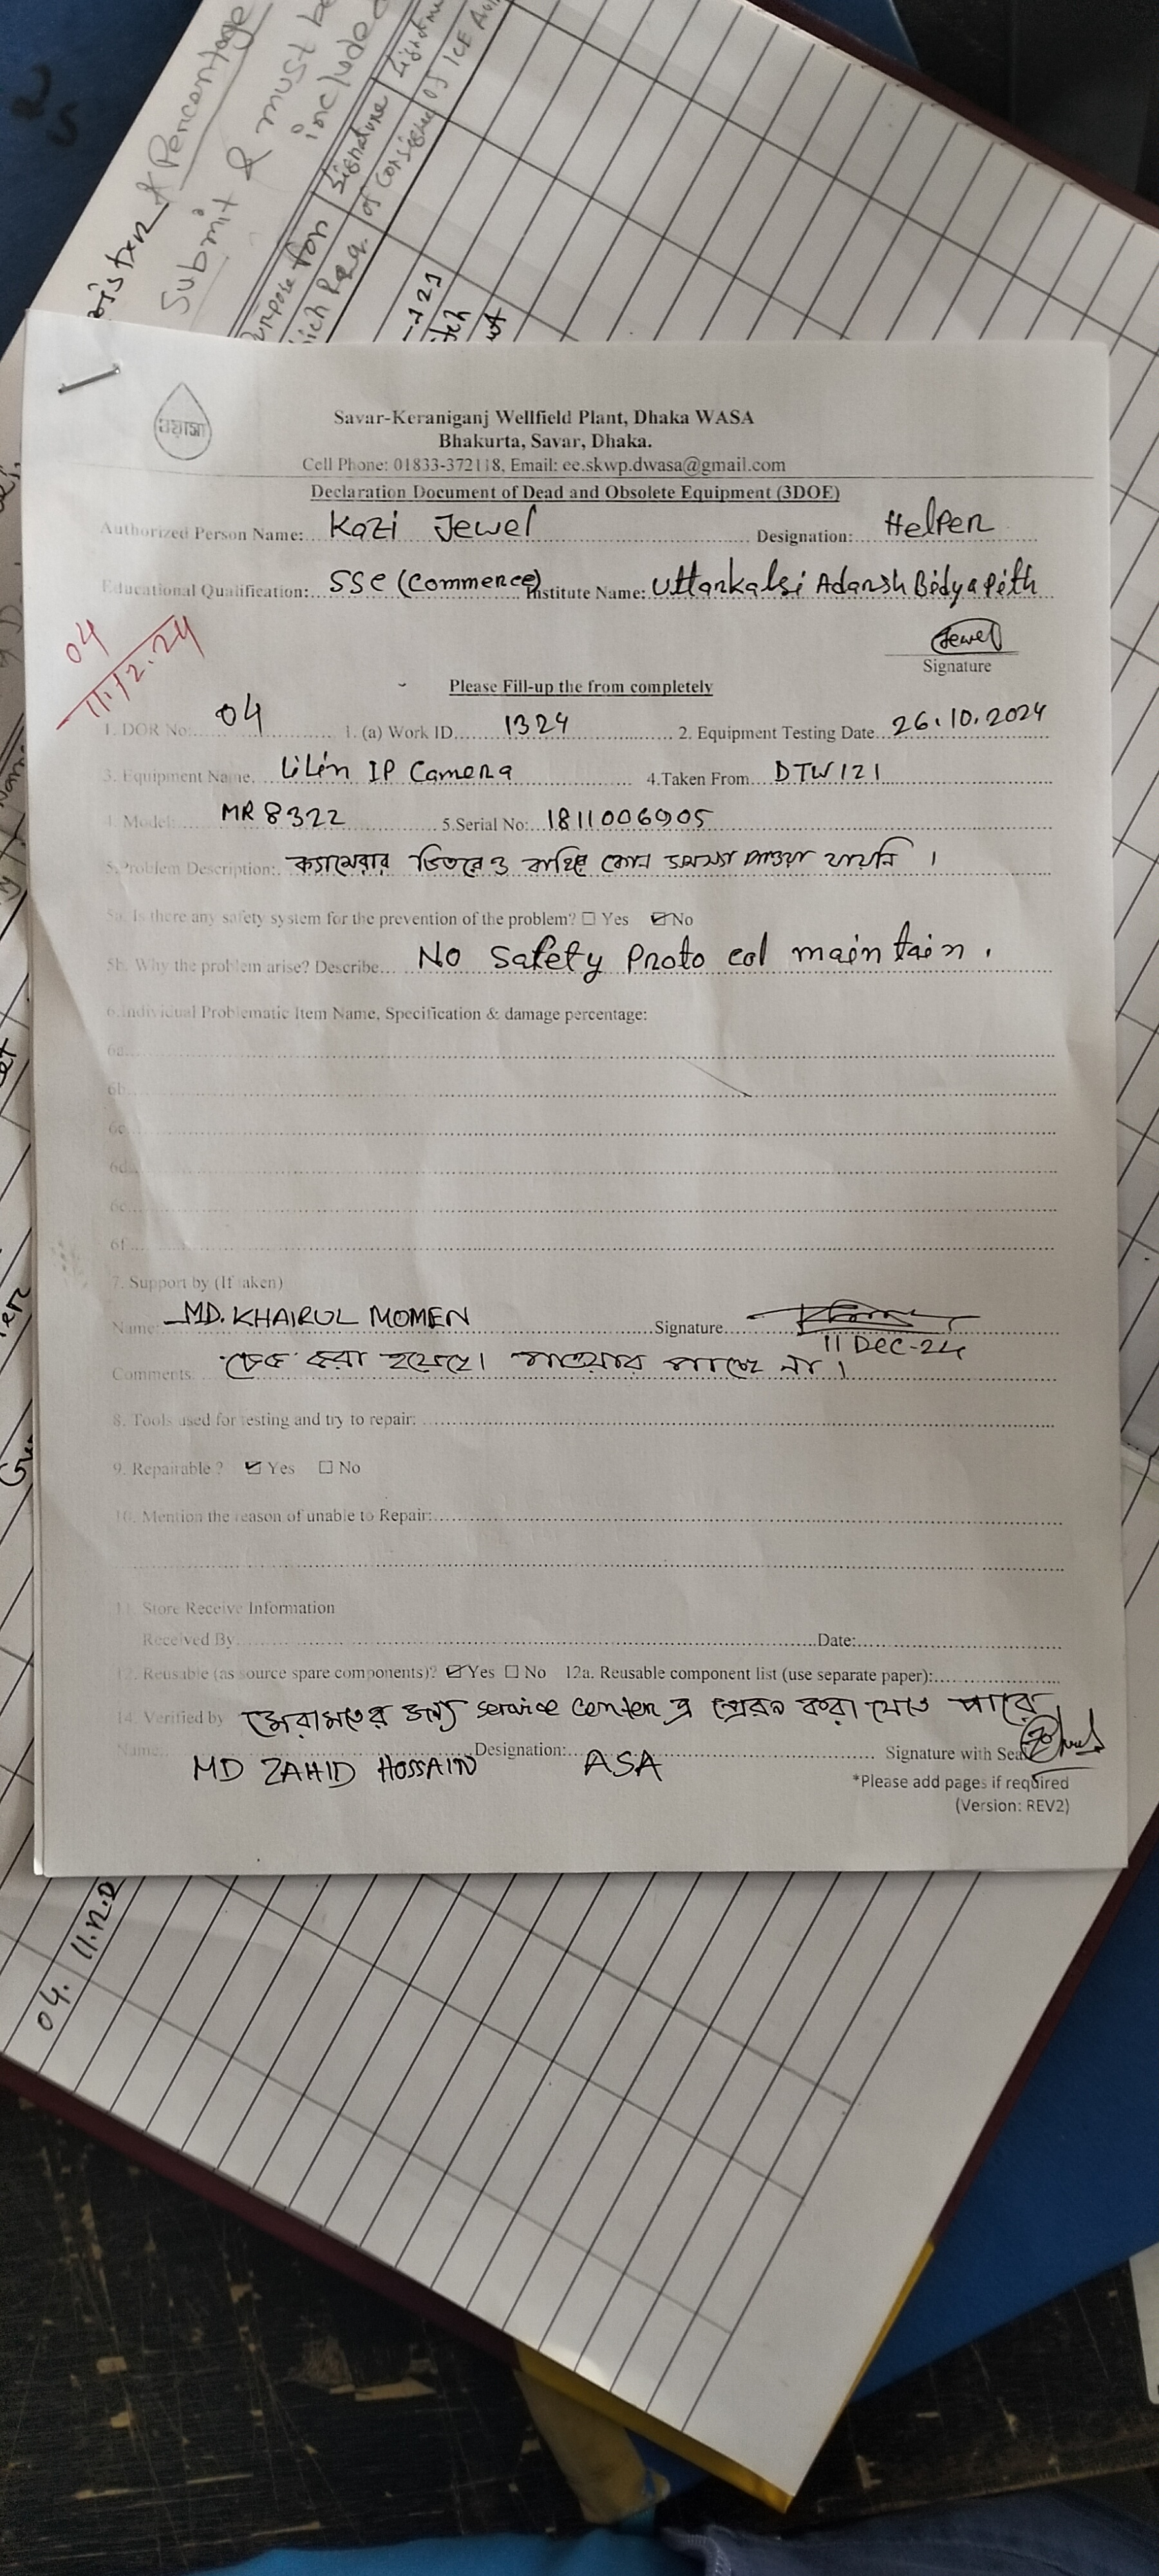 Percentage
Submit & must be
included
Purpose for
which Req.
Signature
of Consignee
of ICE
25
ওয়াসা
Savar-Keraniganj Wellfield Plant, Dhaka WASA
Bhakurta, Savar, Dhaka.
Cell Phone: 01833-372118, Email: ee.skwp.dwasa@gmail.com
Declaration Document of Dead and Obsolete Equipment (3DOE)
Authorized Person Name: Kazi Jewel Designation: Helper
Educational Qualification: SSC (Commerce) Institute Name: Uttarkalsi Adarsh Bidyapith
Jewel
Signature
04
11.12.24
Please Fill-up the from completely
1. DOR No: 04 1. (a) Work ID 1324 2. Equipment Testing Date 26.10.2024
3. Equipment Name LiLin IP Camera 4.Taken From DTW121
4. Model: MR 8322 5.Serial No: 1811006905
5.Problem Description: ক্যামেরার ভিতরে ও বাহিরে কোন সমস্যা পাওয়া যায়নি ।
5a. Is there any safety system for the prevention of the problem? ☐ Yes ☑ No
5b. Why the problem arise? Describe No Safety Proto col maintain.
6.Individual Problematic Item Name, Specification & damage percentage:
6a
6b
6c
6d
6e
6f
7. Support by (If taken)
Name: MD. KHAIRUL MOMEN Signature
11 Dec-24
Comments: চেক করা হয়েছে। পাওয়ার পাচ্ছে না।
8. Tools used for testing and try to repair:
9. Repairable ? ☑ Yes ☐ No
10. Mention the reason of unable to Repair:
11. Store Receive Information
Received By Date:
12. Reusable (as source spare components)? ☑ Yes ☐ No 12a. Reusable component list (use separate paper):
14. Verified by মেরামতের জন্য service center এ প্রেরন করা যেতে পারে
Name: MD ZAHID HOSSAIN Designation: ASA Signature with Seal
*Please add pages if required
(Version: REV2)
04. 11.12.2